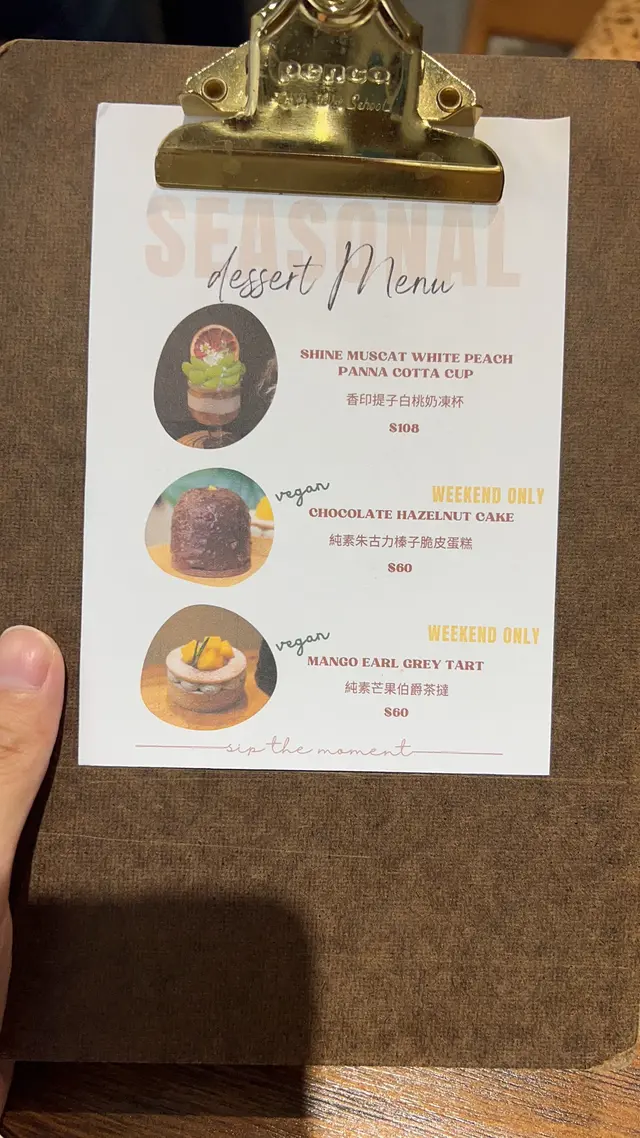 penco
SEASONAL
dessert Menu
SHINE MUSCAT WHITE PEACH
PANNA COTTA CUP
香印提子白桃奶凍杯
$108
vegan
WEEKEND ONLY
CHOCOLATE HAZELNUT CAKE
純素朱古力榛子脆皮蛋糕
$60
vegan
WEEKEND ONLY
MANGO EARL GREY TART
純素芒果伯爵茶撻
$60
sip the moment